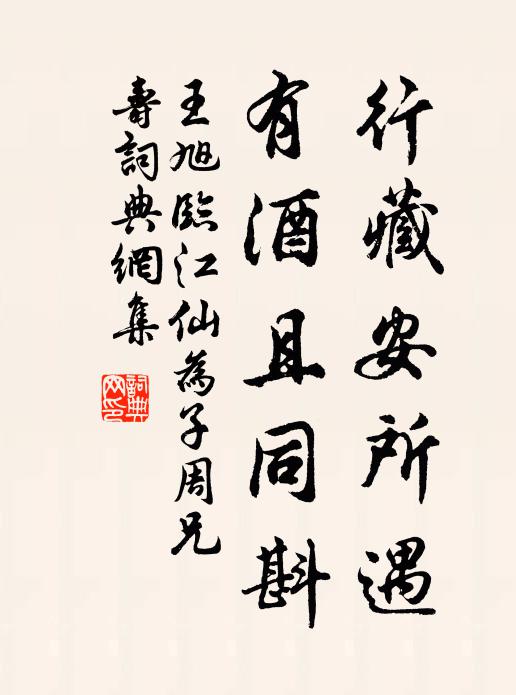 行藏安所遇
有酒且同斟
王旭臨江仙為子周兄
壽詞典網集
詞典网印